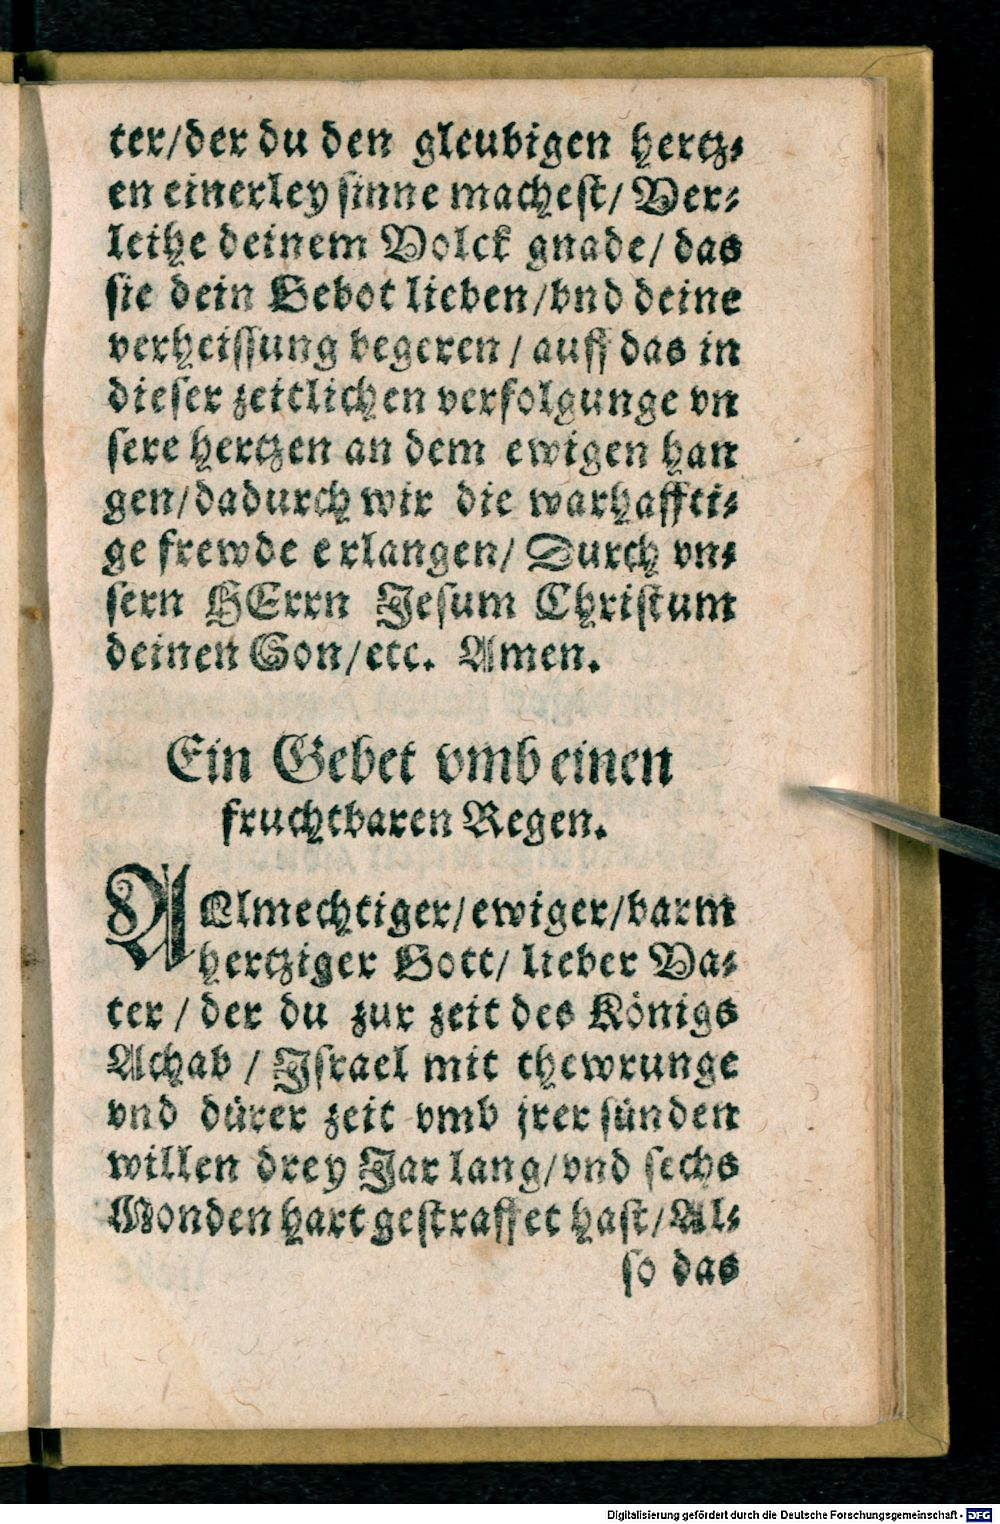 ter/der du den gleubigen hertz⸗
en einerley sinne machest/ Ver⸗
leihe deinem Volck gnade/ das
sie dein Gebot lieben/vnd deine
verheissung begeren / auff das in
dieser zeitlichen verfolgunge vn
sere hertzen an dem ewigen han
gen/dadurch wir die warhaffti⸗
ge frewde erlangen/ Durch vn⸗
sern HErrn Jesum Christum
deinen Son/etc. Amen.
Ein Gebet vmb einen
fruchtbaren Regen.
AAlmechtiger/ewiger/barm
hertziger Gott/ lieber Va⸗
ter / der du zur zeit des Königs
Achab / Jsrael mit thewrunge
vnd dürer zeit vmb jrer sünden
willen drey Jar lang/vnd sechs
Monden hart gestraffet hast/Al⸗
so das
Digitalisierung gefördert durch die Deutsche Forschungsgemeinschaft - DFG